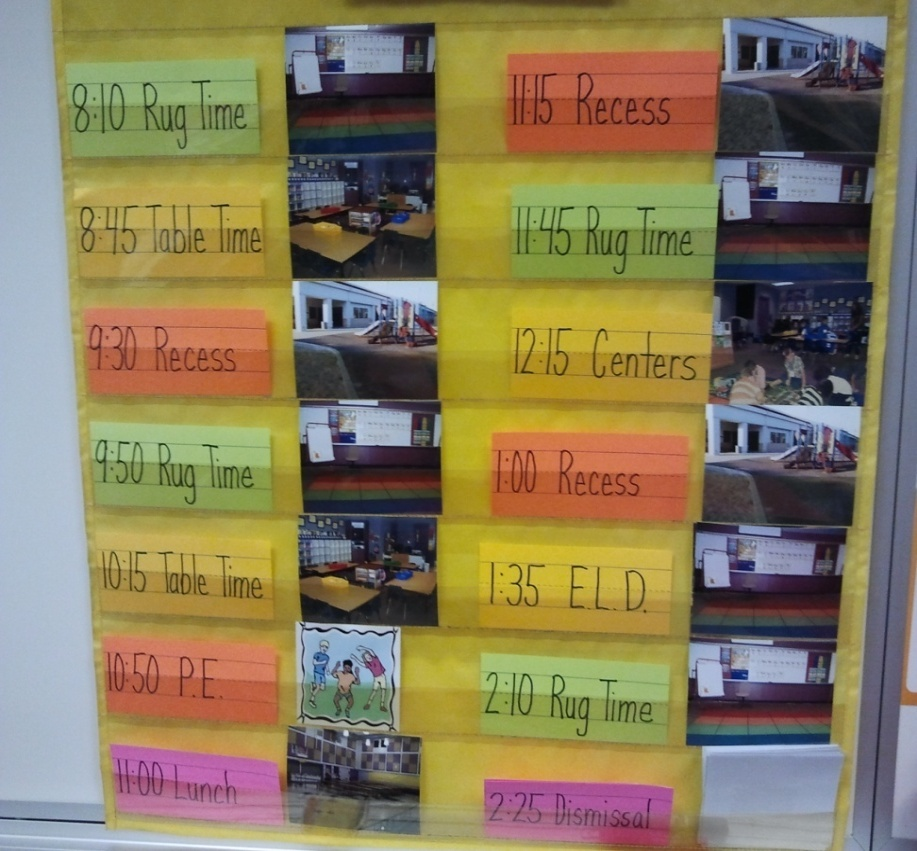 8:10 Rug Time
8:45 Table Time
9:30 Recess
9:50 Rug Time
10:15 Table Time
10:50 P.E.
11:00 Lunch
11:15 Recess
11:45 Rug Time
12:15 Centers
1:00 Recess
1:35 E.L.D.
2:10 Rug Time
2:25 Dismissal